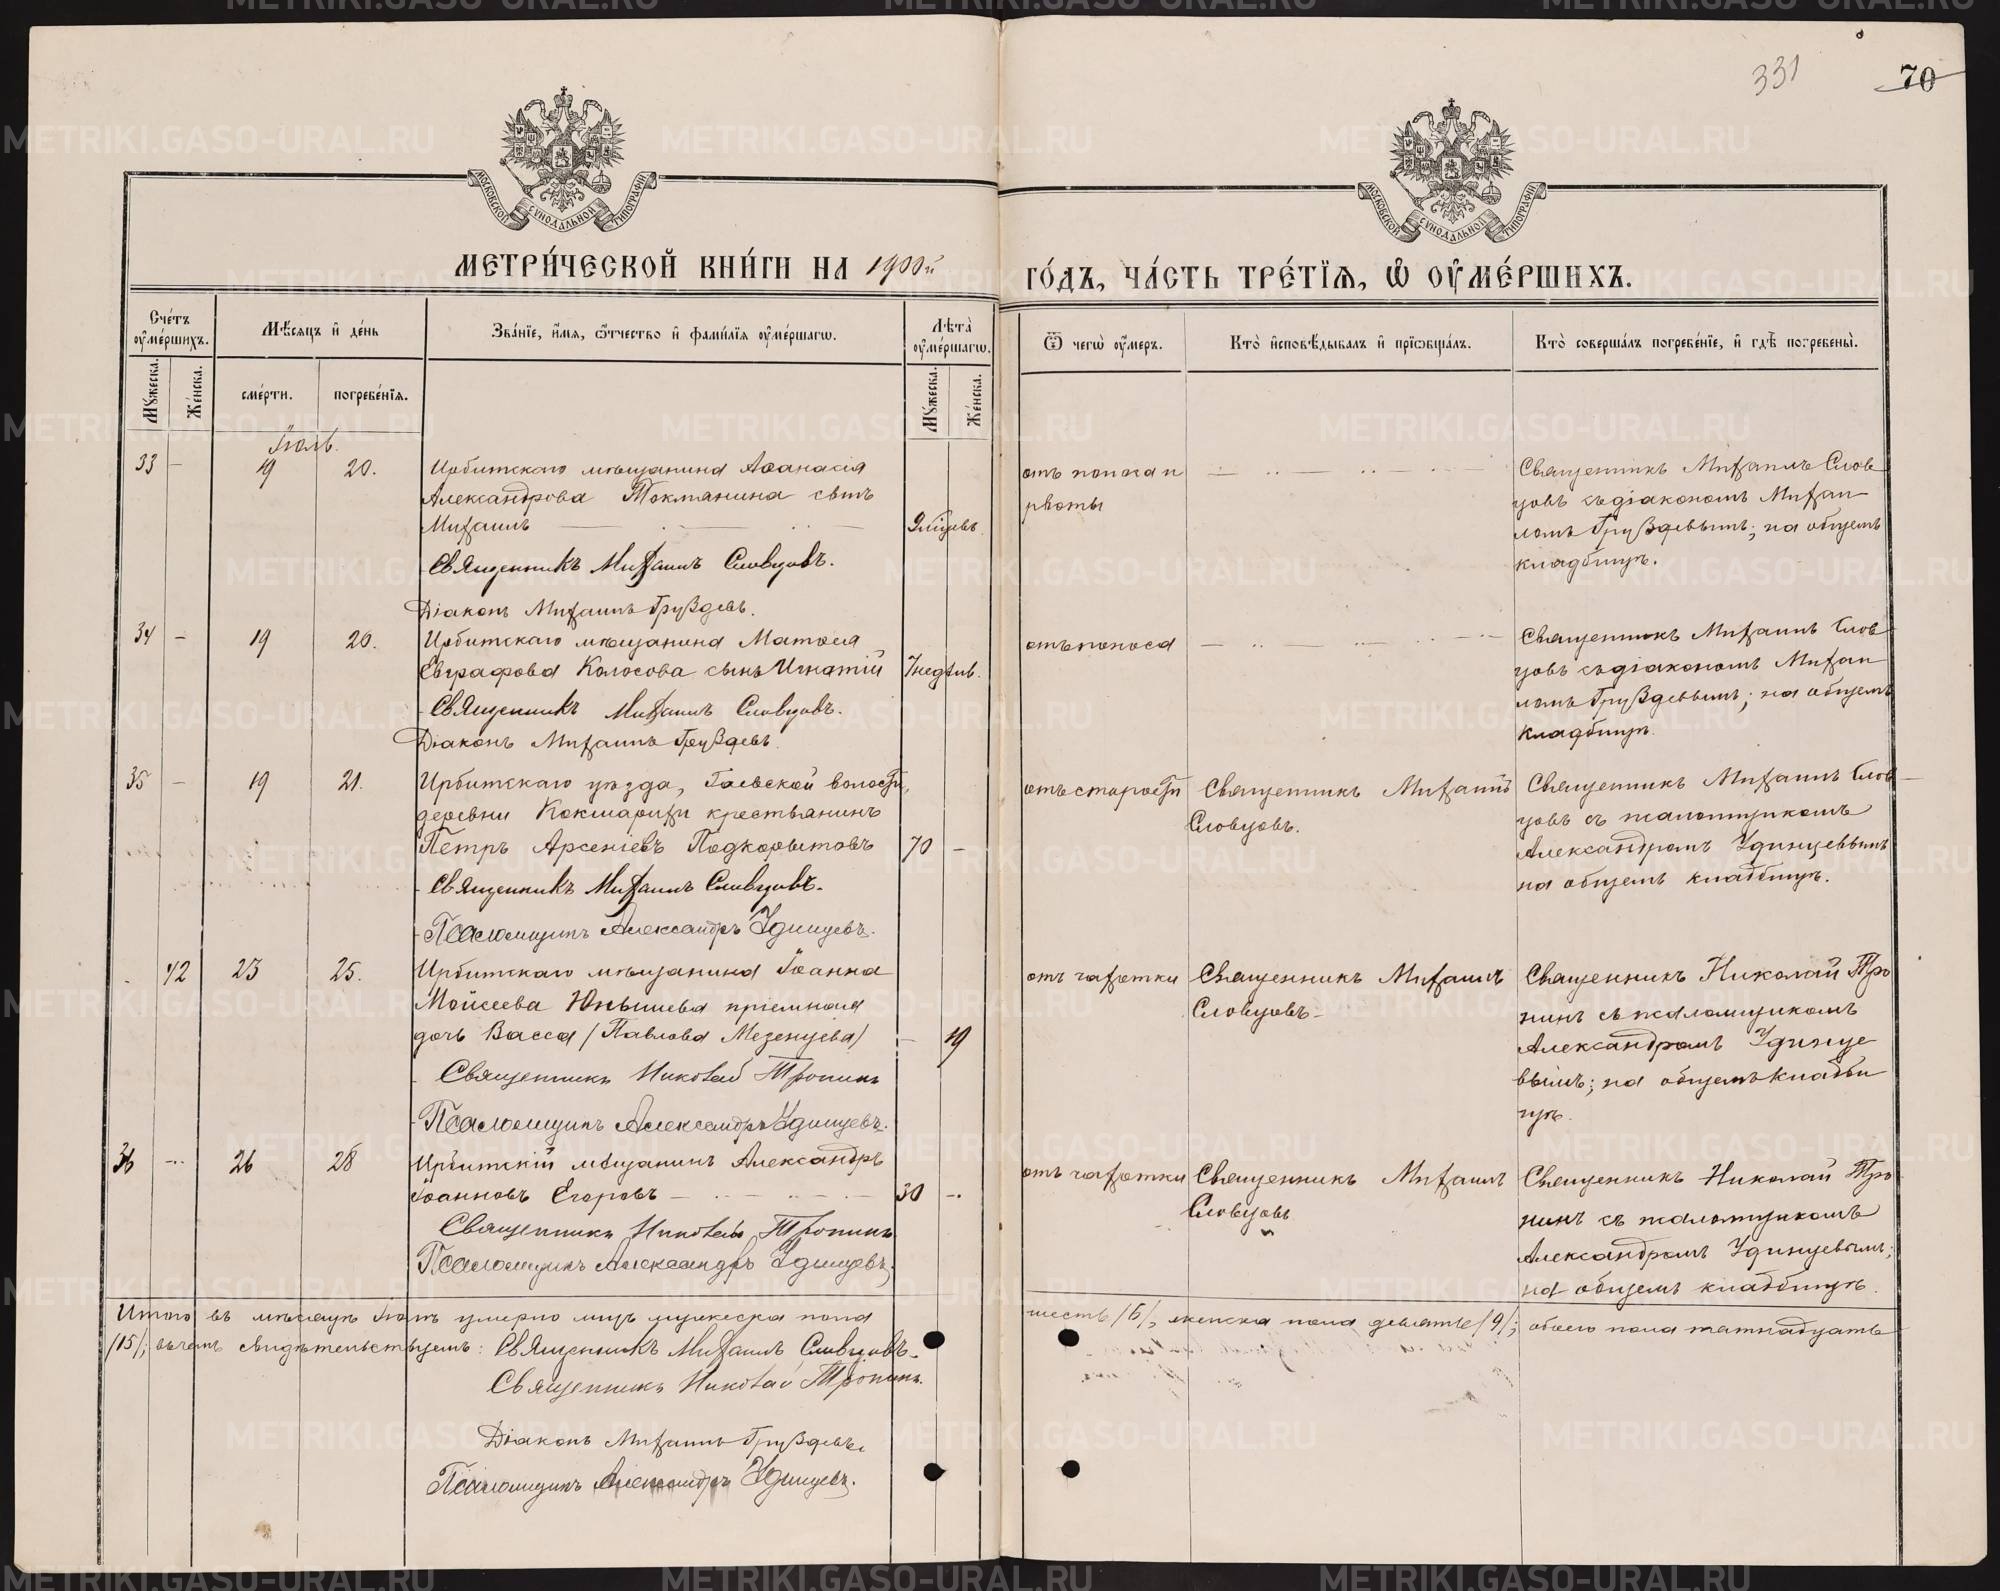 331
70
МОСКОВСКОЙ СѴНОДАЛЬНОЙ ТИПОГРАФІИ
МОСКОВСКОЙ СѴНОДАЛЬНОЙ ТИПОГРАФІИ
МЕТРИ́ЧЕСКОЙ КНИ́ГИ НА 1900й
ГО́ДЪ, ЧА́СТЬ ТРЕ́ТЇѦ, Ѡ҆ ОУ҆МЕ́РШИХЪ.
Сче́тъ оу҆ме́ршихъ.
Мѣ́сѧцъ и҆ де́нь
Зва́нїе, и҆́мѧ, ѻ҆́тчество и҆ фами́лїѧ оу҆ме́ршагѡ.
Лѣ́та оу҆ме́ршагѡ.
Мꙋ́жеска.
Же́нска.
сме́рти.
погребе́нїѧ.
Мꙋ́жеска.
Же́нска.
Ѿ чегѡ̀ оу҆́меръ.
Кто̀ и҆сповѣ́дывалъ и҆ прїѡбща́лъ.
Кто̀ соверша́лъ погребе́нїе, и҆ гдѣ̀ погребены̀.
Іюль.
33 — 19 20. Ирбитскаго мѣщанина Аѳанасія
Александрова Токмянина сынъ
Михаилъ 9 мѣсяцевъ
Священникъ Михаилъ Словцовъ.
Діаконъ Михаилъ Груздевъ.
отъ поноса и
рвоты
Священникъ Михаилъ Слов
цовъ съ діакономъ Михаи
ломъ Груздевымъ; на общемъ
кладбищѣ.
34 — 19 20. Ирбитскаго мѣщанина Матѳея
Евграфова Колосова сынъ Игнатій 7 недѣль.
Священникъ Михаилъ Словцовъ.
Діаконъ Михаилъ Груздевъ.
отъ поноса
Священникъ Михаилъ Слов
цовъ съ діакономъ Михаи
ломъ Груздевымъ; на общемъ
кладбищѣ.
35 — 19 21. Ирбитскаго уѣзда, Гаевской волости,
деревни Кокшарихи крестьянинъ
Петръ Арсеніевъ Подкорытовъ 70 —
Священникъ Михаилъ Словцовъ.
Псаломщикъ Александръ Удинцевъ.
отъ старости
Священникъ Михаилъ
Словцовъ.
Священникъ Михаилъ Слов
цовъ съ псаломщикомъ
Александромъ Удинцевымъ
на общемъ кладбищѣ.
42 23 25. Ирбитскаго мѣщанина Іоанна
Моисеева Юньшева пріемная
дочь Васса (Павлова Мезенцева) — 19
Священникъ Николай Тронинъ
Псаломщикъ Александръ Удинцевъ.
отъ чахотки
Священникъ Михаилъ
Словцовъ
Священникъ Николай Тро
нинъ съ псаломщикомъ
Александромъ Удинце
вымъ; на общемъ кладби
щѣ.
36 — 26 28 Ирбитскій мѣщанинъ Александръ
Іоанновъ Егоровъ 30 —
Священникъ Николай Тронинъ
Псаломщикъ Александръ Удинцевъ.
отъ чахотки
Священникъ Михаилъ
Словцовъ
Священникъ Николай Тро
нинъ съ псаломщикомъ
Александромъ Удинцевымъ;
на общемъ кладбищѣ.
Итого въ мѣсяцѣ Іюлѣ умерло лицъ мужеска пола шесть /6/, женска пола девять /9/; обоего пола пятнадцать
/15/; въ чемъ свидѣтельствуемъ: Священникъ Михаилъ Словцовъ
Священникъ Николай Тронинъ.
Діаконъ Михаилъ Груздевъ.
Псаломщикъ Александръ Удинцевъ.
METRIKI.GASO-URAL.RU